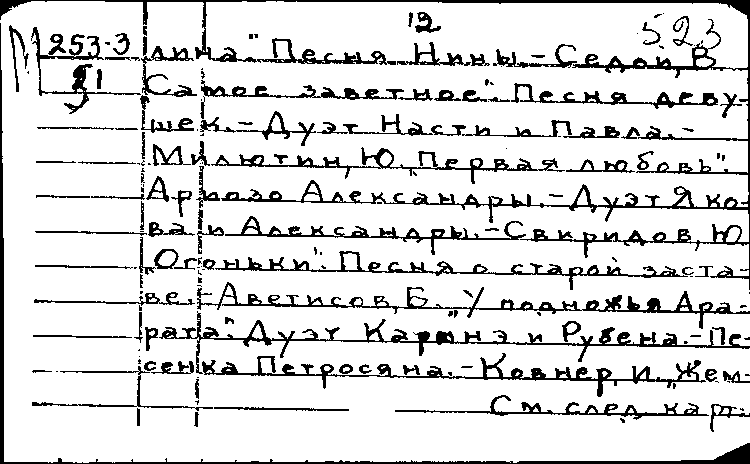 12
523
М 253-3 лина". Песня Нины.-Седой, В
21 Самое заветное". Песня деву-
шек.-Дуэт Насти и Павла.-
Милютин, Ю. „Первая любовь".
Ариозо Александры.-Дуэт Яко-
ва и Александры.-Свиридов, Ю
„Огоньки". Песня о старой заста-
ве.-Аветисов, Б. „У подножья Ара-
рата". Дуэт Каринэ и Рубена.-Пе-
сенка Петросяна.-Ковнер, И. „Жем-
См. след. карт.